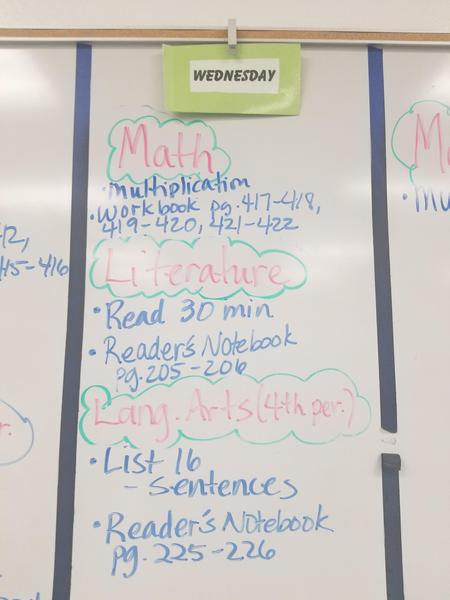 WEDNESDAY
Math
• multiplication
• Workbook pg. 417-418,
419-420, 421-422
Literature
• Read 30 min
• Reader's Notebook
pg. 205-206
Lang. Arts (4th per.)
• List 16
- Sentences
• Reader's Notebook
pg. 225-226